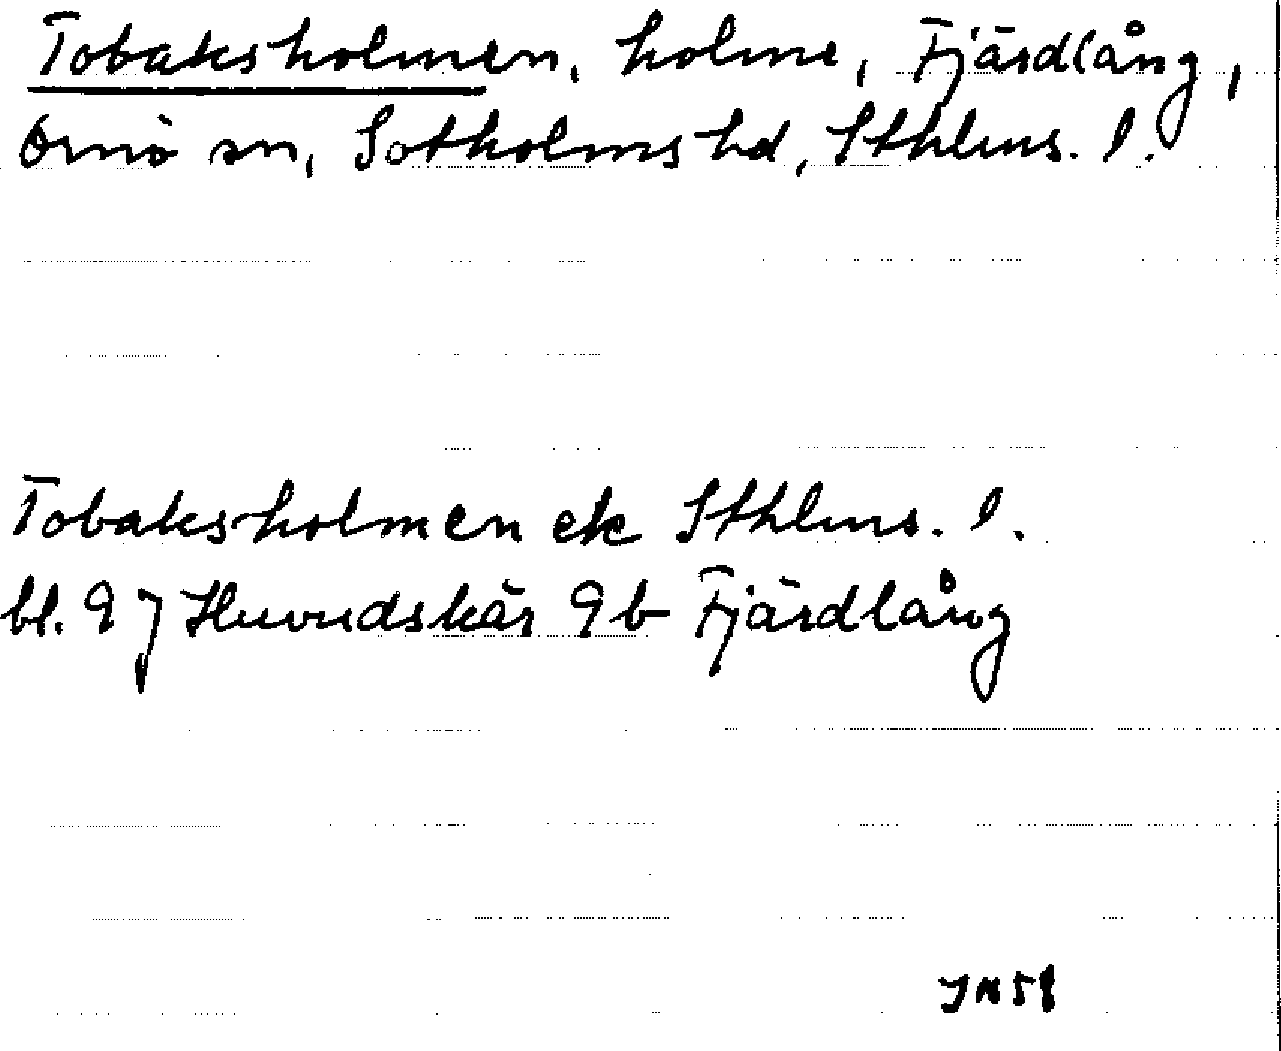 Tobaksholmen, holme, Fjärdlång,
Ornö sn, Sotholms hd, Sthlms. l.
Tobaksholmen ek Sthlms. l.
bl. 9 j Huvudskär 9b Fjärdlång